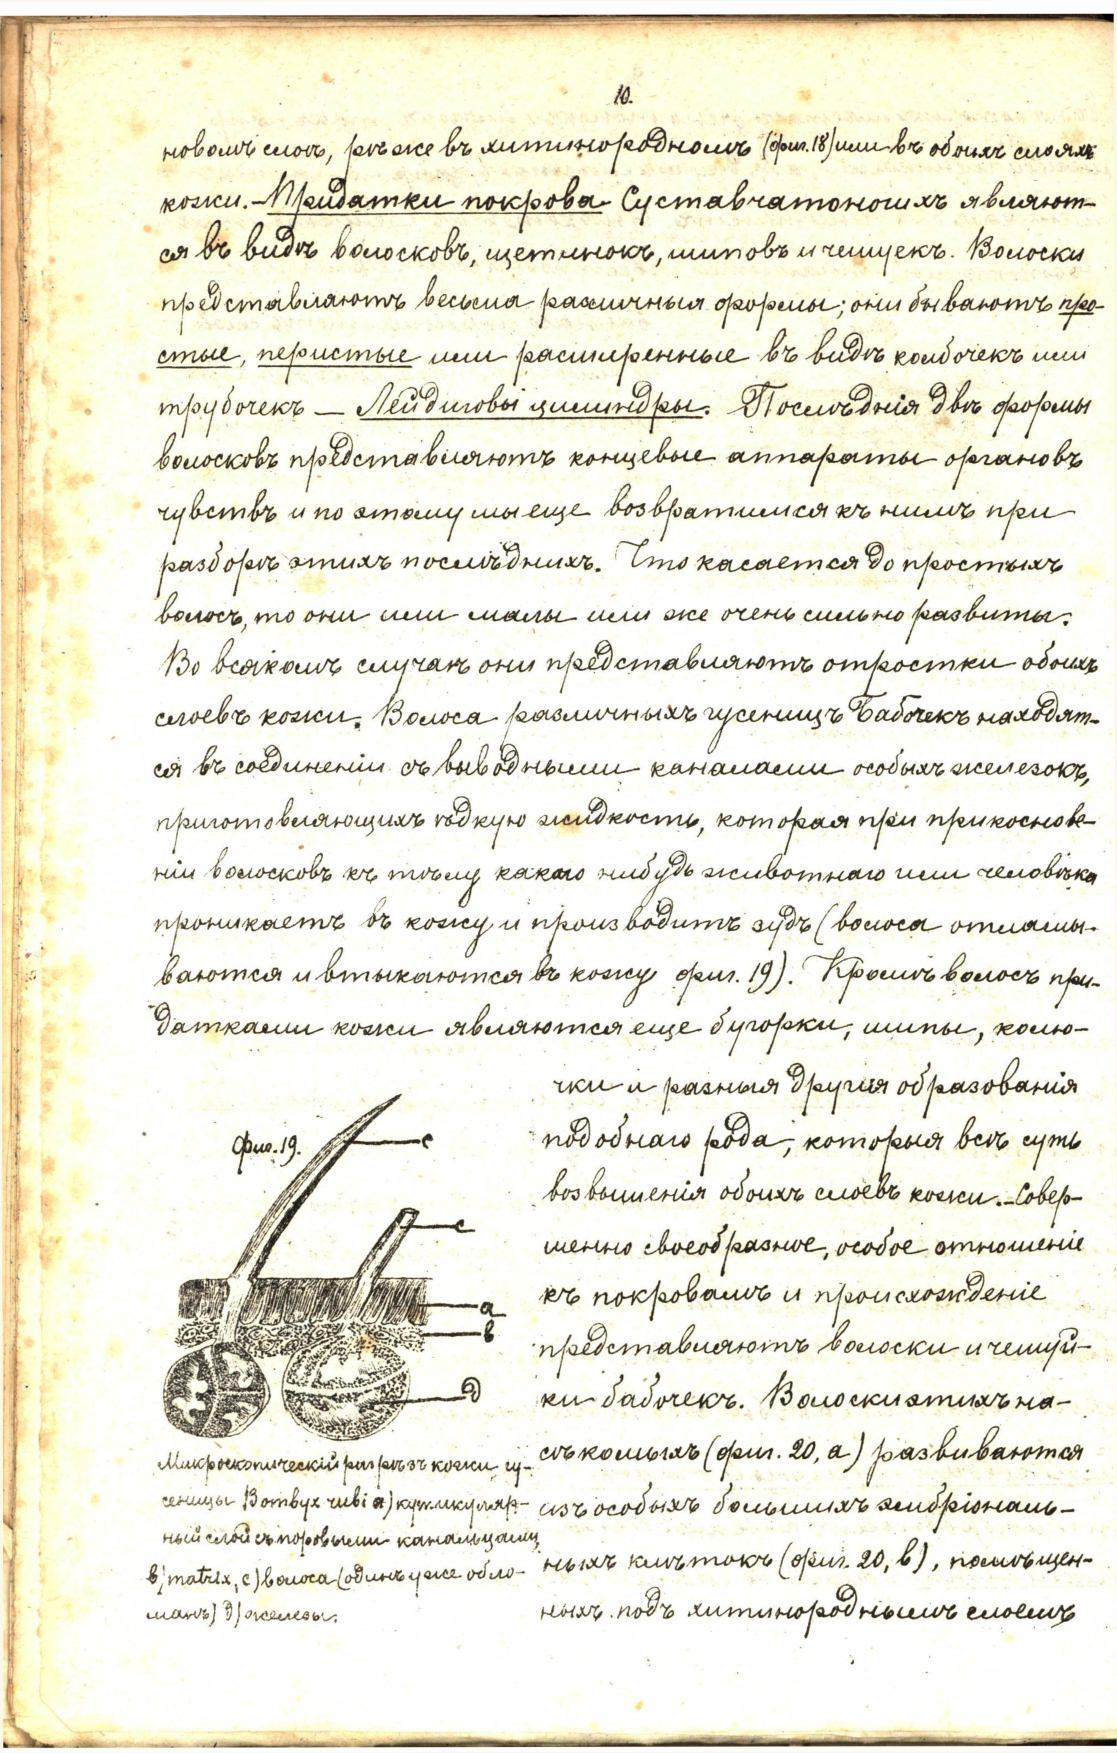 10.
новомъ слоѣ, рѣже въ хитинородномъ (фиг. 18) или въ обоихъ слояхъ
кожи. — Придатки покрова Суставчатоногихъ являют-
ся въ видѣ волосковъ, щетинокъ, шиповъ и чешуекъ. Волоски
представляютъ весьма различныя формы; они бываютъ про-
стые, перистые или расширенные въ видѣ колбочекъ или
трубочекъ — Лейдиговы цилиндры. Послѣднія двѣ формы
волосковъ представляютъ концевые аппараты органовъ
чувствъ и по этому мы еще возвратимся къ нимъ при
разборѣ этихъ послѣднихъ. Что касается до простыхъ
волосъ, то они или малы или же очень сильно развиты.
Во всякомъ случаѣ они представляютъ отростки обоихъ
слоевъ кожи. Волоса различныхъ гусеницъ Бабочекъ находят-
ся въ соединеніи съ выводными каналами особыхъ железокъ,
приготовляющихъ ѣдкую жидкость, которая при прикоснове-
ніи волосковъ къ тѣлу какаго нибудь животнаго или человѣка
проникаетъ въ кожу и производитъ зудъ (волоса отламы-
ваются и втыкаются въ кожу фиг. 19). Кромѣ волосъ при-
датками кожи являются еще бугорки, шипы, колю-
чки и разныя другія образованія
подобнаго рода, которыя всѣ суть
возвышенія обоихъ слоевъ кожи. — Совер-
шенно своеобразное, особое отношеніе
къ покровамъ и происхожденіе
представляютъ волоски и чешуй-
ки бабочекъ. Волоски этихъ на-
сѣкомыхъ (фиг. 20, а) развиваются
изъ особыхъ большихъ эмбріональ-
ныхъ клѣтокъ (фиг. 20, в), помѣщен-
ныхъ подъ хитинороднымъ слоемъ
Фиг. 19.
с
с
а
в
д
Микроскопическій разрѣзъ кожи гу-
сеницы Bombyx rubi а) кутикуляр-
ный слой съ поровыми канальцами
в) matrix, с) волоса (одинъ уже обло-
манъ) д) железы.